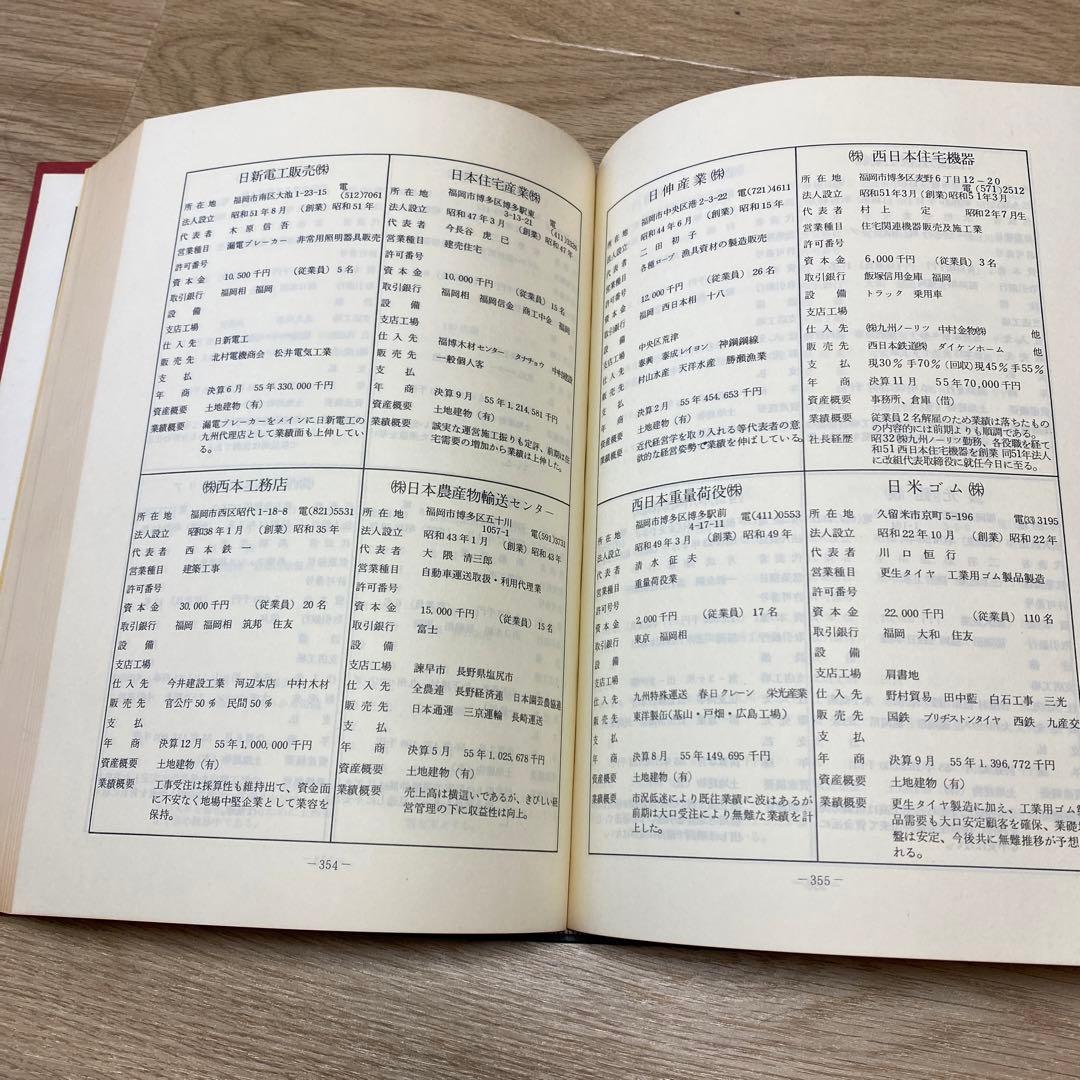 日新電工販売㈱
所在地 福岡市南区大池1-23-15 電(512)7061
法人設立 昭和51年8月 (創業) 昭和51年
代表者 木原信吾
営業種目 漏電ブレーカー 非常用照明器具販売
許可番号
資本金 10,500千円 (従業員) 5名
取引銀行 福岡相 福岡
設備
支店工場
仕入先 日新電工
販売先 北村電機商会 松井電気工業
支払
年商 決算6月 55年330,000千円
資産概要 土地建物(有)
業績概要 漏電ブレーカーをメインに日新電工の
九州代理店として業績面も上伸してい
る。
日本住宅産業㈱
所在地 福岡市博多区博多駅東
3-13-21 電(411)
法人設立 昭和47年3月 (創業) 昭和47年
代表者 今長谷虎巳
営業種目 建売住宅
許可番号
資本金 10,000千円 (従業員) 15名
取引銀行 福岡相 福岡信金 商工中金 福岡
設備
支店工場
仕入先 福博木材センター タナチョウ
販売先 一般個人客
支払
年商 決算9月 55年1,214,581千円
資産概要 土地建物(有)
業績概要 誠実な運営施工振りも定評、前期は住
宅需要の増加から業績は上伸した。
㈱西本工務店
所在地 福岡市西区昭代1-18-8 電(821)5531
法人設立 昭和38年1月 (創業) 昭和35年
代表者 西本鉄一
営業種目 建築工事
許可番号
資本金 30,000千円 (従業員) 20名
取引銀行 福岡 福岡相 筑邦 住友
設備
支店工場
仕入先 今井建設工業 河辺本店 中村木材
販売先 官公庁50% 民間50%
支払
年商 決算12月 55年1,000,000千円
資産概要 土地建物(有)
業績概要 工事受注は採算性も維持出て、資金面
に不安なく地場中堅企業として業容を
保持。
㈱日本農産物輸送センター
所在地 福岡市博多区五十川
1057-1 電(591)3731
法人設立 昭和43年1月 (創業) 昭和43年
代表者 大隈清三郎
営業種目 自動車運送取扱・利用代理業
許可番号
資本金 15,000千円 (従業員) 15名
取引銀行 富士
設備
支店工場 諫早市 長野県塩尻市
仕入先 全農連 長野経済連 日本園芸農協連
販売先 日本通運 三京運輸 長崎運送
支払
年商 決算5月 55年1,025,678千円
資産概要 土地建物(有)
業績概要 売上高は横這いであるが、きびしい経
営管理の下に収益性は向上。
—354—
日伸産業㈱
所在地 福岡市中央区港2-3-22 電(721)4611
法人設立 昭和44年6月 (創業) 昭和15年
代表者 二田初子
営業種目 各種ロープ 漁具資材の製造販売
許可番号
資本金 12,000千円 (従業員) 26名
取引銀行 福岡 西日本相 十八
設備
支店工場 中央区荒津
仕入先 泰興 泰成レイヨン 神鋼鋼線
販売先 村山水産 天洋水産 勝瀬漁業
支払
年商 決算2月 55年454,653千円
資産概要 土地建物(有)
業績概要 近代経営学を取り入れる等代表者の意
欲的な経営姿勢で業績を伸ばしている。
㈱ 西日本住宅機器
所在地 福岡市博多区麦野6丁目12-20
電(571)2512
法人設立 昭和51年3月 (創業) 昭和51年3月
代表者 村上定 昭和2年7月生
営業種目 住宅関連機器販売及施工業
許可番号
資本金 6,000千円 (従業員) 3名
取引銀行 飯塚信用金庫 福岡
設備 トラック 乗用車
支店工場
仕入先 ㈱九州ノーリツ 中村金物㈱ 他
販売先 西日本鉄道㈱ ダイケンホーム 他
支払 現30% 手70% (回収) 現45% 手55%
年商 決算11月 55年70,000千円
資産概要 事務所、倉庫(借)
業績概要 従業員2名解雇のため業績は落ちたもの
の内容的には前期よりも順調である。
社長経歴 昭32㈱九州ノーリツ勤務、各役職を経て
和51西日本住宅機器を創業 同51年法人
に改組代表取締役に就任今日に至る。
西日本重量荷役㈱
所在地 福岡市博多区博多駅前
4-17-11 電(411)0553
法人設立 昭和49年3月 (創業) 昭和49年
代表者 清水征夫
営業種目 重量荷役業
許可番号
資本金 2,000千円 (従業員) 17名
取引銀行 東京 福岡相
設備
支店工場
仕入先 九州特殊運送 春日クレーン 栄光産業
販売先 東洋製缶(基山・戸畑・広島工場)
支払
年商 決算8月 55年149,695千円
資産概要 土地建物(有)
業績概要 市況低迷により既往業績に波はあるが
前期は大口受注により無難な業績を計
上した。
日米ゴム㈱
所在地 久留米市京町5-196 電(33)3195
法人設立 昭和22年10月 (創業) 昭和22年
代表者 川口恒行
営業種目 更生タイヤ 工業用ゴム製品製造
許可番号
資本金 22,000千円 (従業員) 110名
取引銀行 福岡 大和 住友
設備
支店工場 肩書地
仕入先 野村貿易 田中藍 白石工事 三光
販売先 国鉄 ブリヂストンタイヤ 西鉄 九産交
支払
年商 決算9月 55年1,396,772千円
資産概要 土地建物(有)
業績概要 更生タイヤ製造に加え、工業用ゴム
品需要も大口安定顧客を確保、業礎
盤は安定、今後共に無難推移が予想
れる。
—355—